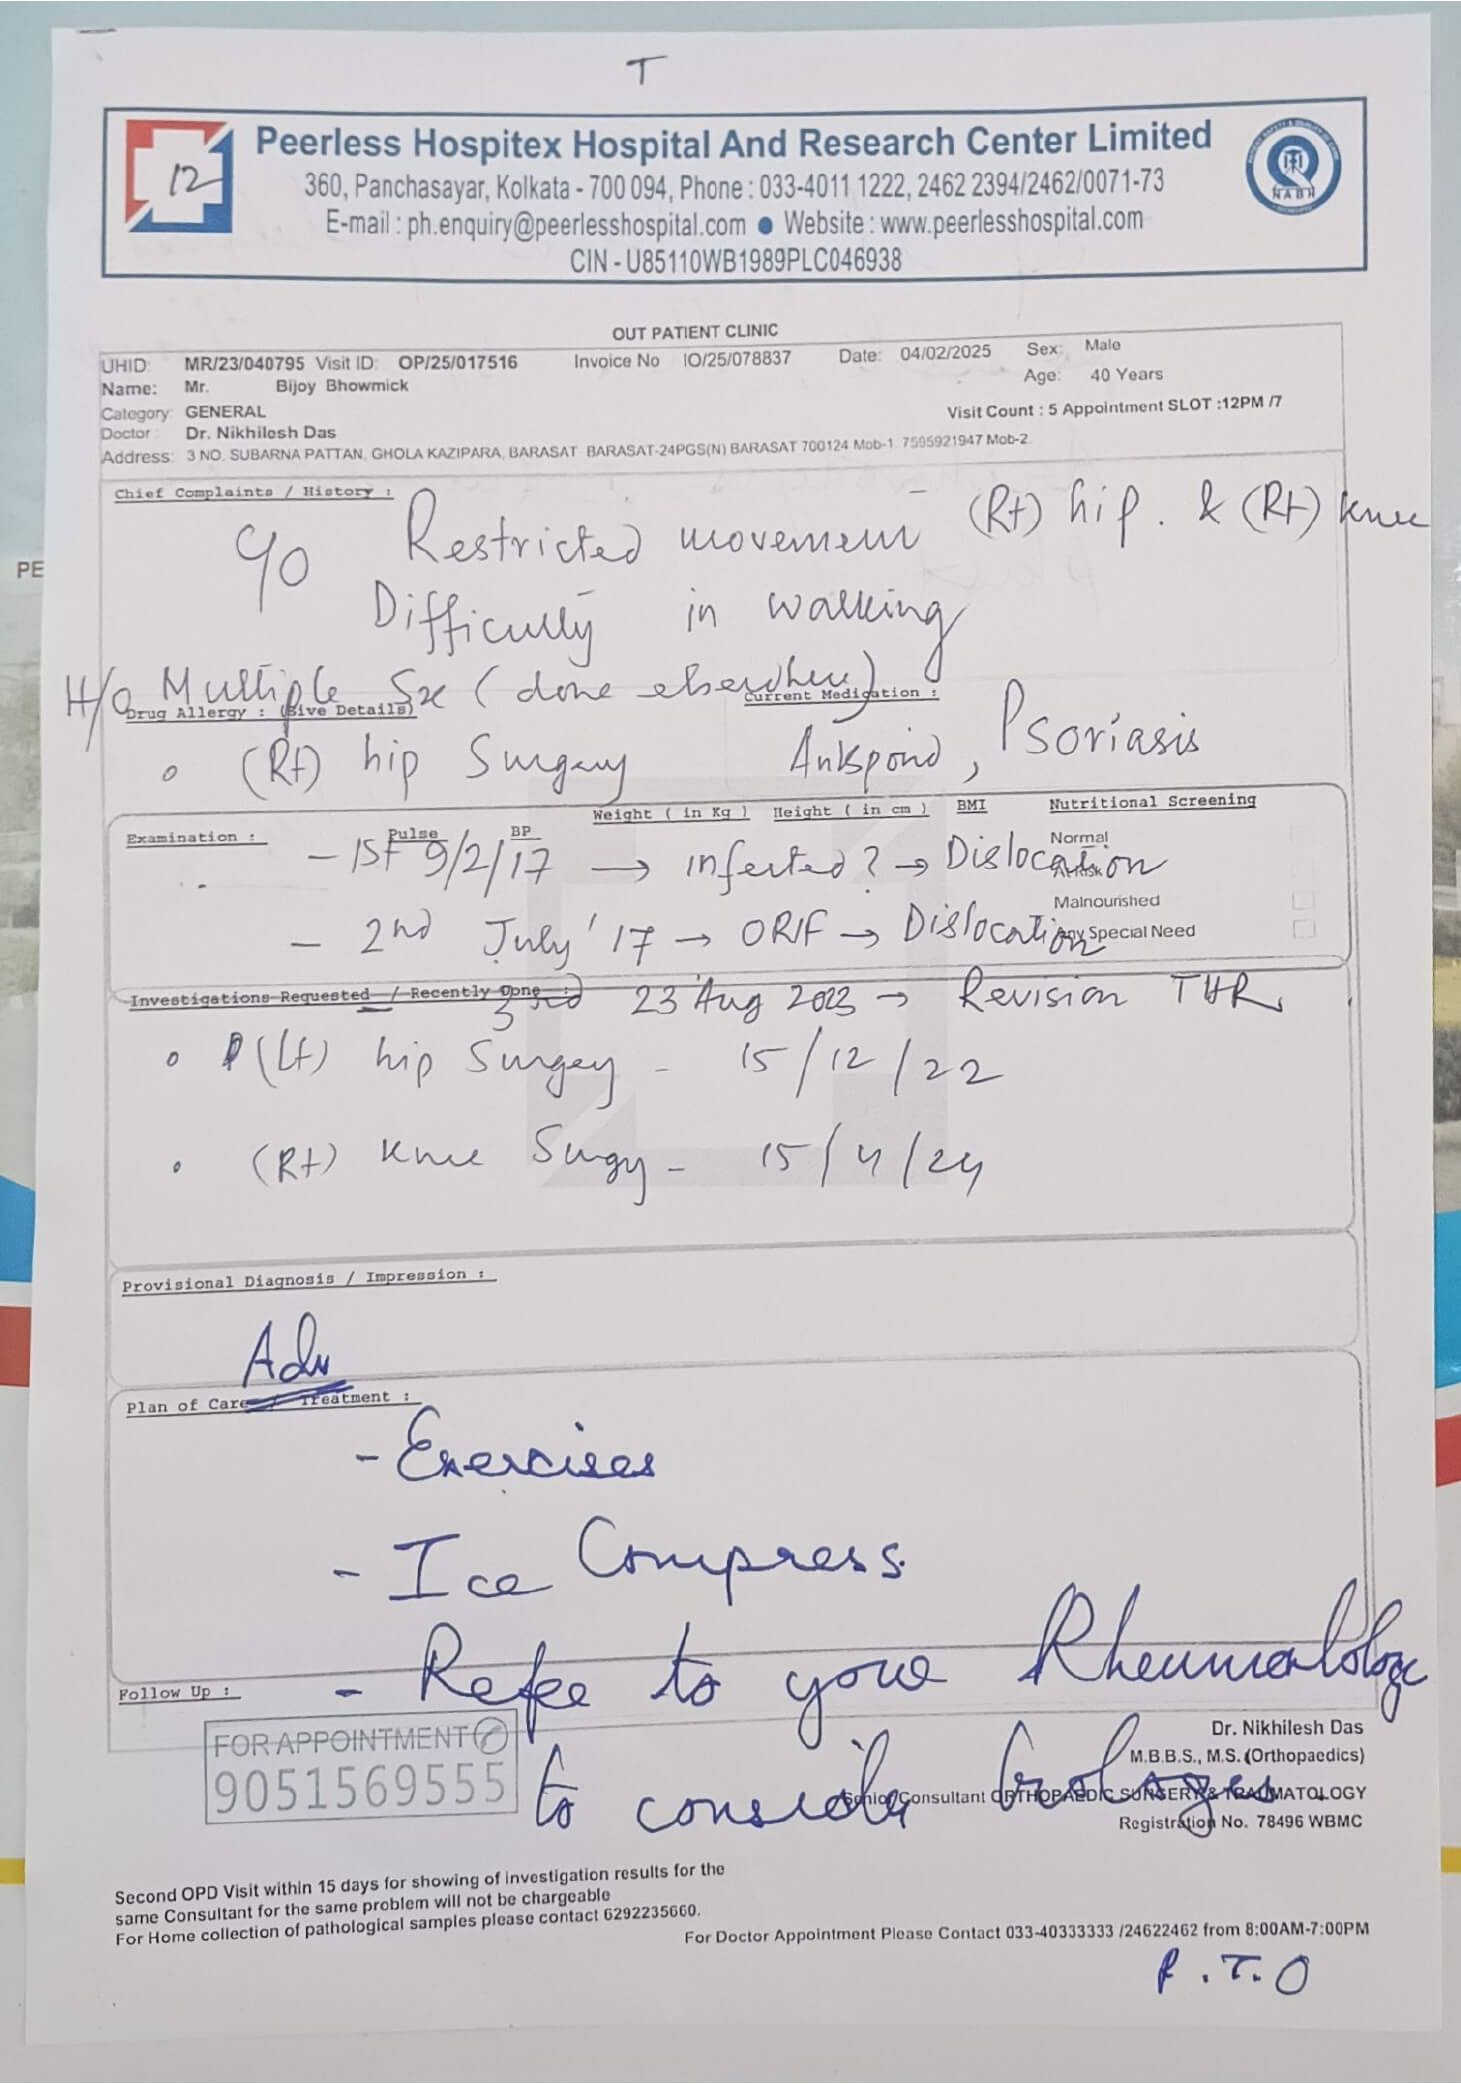 T
12
Peerless Hospitex Hospital And Research Center Limited
360, Panchasayar, Kolkata - 700 094, Phone : 033-4011 1222, 2462 2394/2462/0071-73
E-mail : ph.enquiry@peerlesshospital.com ● Website : www.peerlesshospital.com
CIN - U85110WB1989PLC046938
NABH
OUT PATIENT CLINIC
UHID: MR/23/040795 Visit ID: OP/25/017516 Invoice No IO/25/078837 Date: 04/02/2025 Sex: Male
Name: Mr. Bijoy Bhowmick Age: 40 Years
Category: GENERAL Visit Count : 5 Appointment SLOT :12PM /7
Doctor : Dr. Nikhilesh Das
Address: 3 NO. SUBARNA PATTAN, GHOLA KAZIPARA, BARASAT BARASAT-24PGS(N) BARASAT 700124 Mob-1 7595921947 Mob-2
Chief Complaints / History :
C/o Restricted movement (Rt) hip. & (Rt) knee
PE
Difficulty in walking
H/o Multiple Sx (done elsewhere)
Drug Allergy : (Give Details) Current Medication :
(Rt) hip Surgery Ankspond, Psoriasis
Weight ( in Kg ) Height ( in cm ) BMI Nutritional Screening
Examination : Pulse BP Normal
- 1st 9/2/17 → infected? → Dislocation
At Risk
Malnourished
- 2nd July '17 → ORIF → Dislocation
Any Special Need
Investigations Requested / Recently Done :
3rd 23 Aug 2023 → Revision THR
(Lt) hip Surgery - 15/12/22
(Rt) Knee Surgy - 15/4/24
Provisional Diagnosis / Impression :
Adv
Plan of Care / Treatment :
- Exercises
- Ice Compress
- Refer to your Rheumatologc
Follow Up :
FOR APPOINTMENT
9051569555
to consider
Dr. Nikhilesh Das
M.B.B.S., M.S. (Orthopaedics)
Senior Consultant ORTHOPAEDIC SURGERY & TRAUMATOLOGY
Registration No. 78496 WBMC
Second OPD Visit within 15 days for showing of investigation results for the
same Consultant for the same problem will not be chargeable
For Home collection of pathological samples please contact 6292235660.
For Doctor Appointment Please Contact 033-40333333 /24622462 from 8:00AM-7:00PM
P.T.O